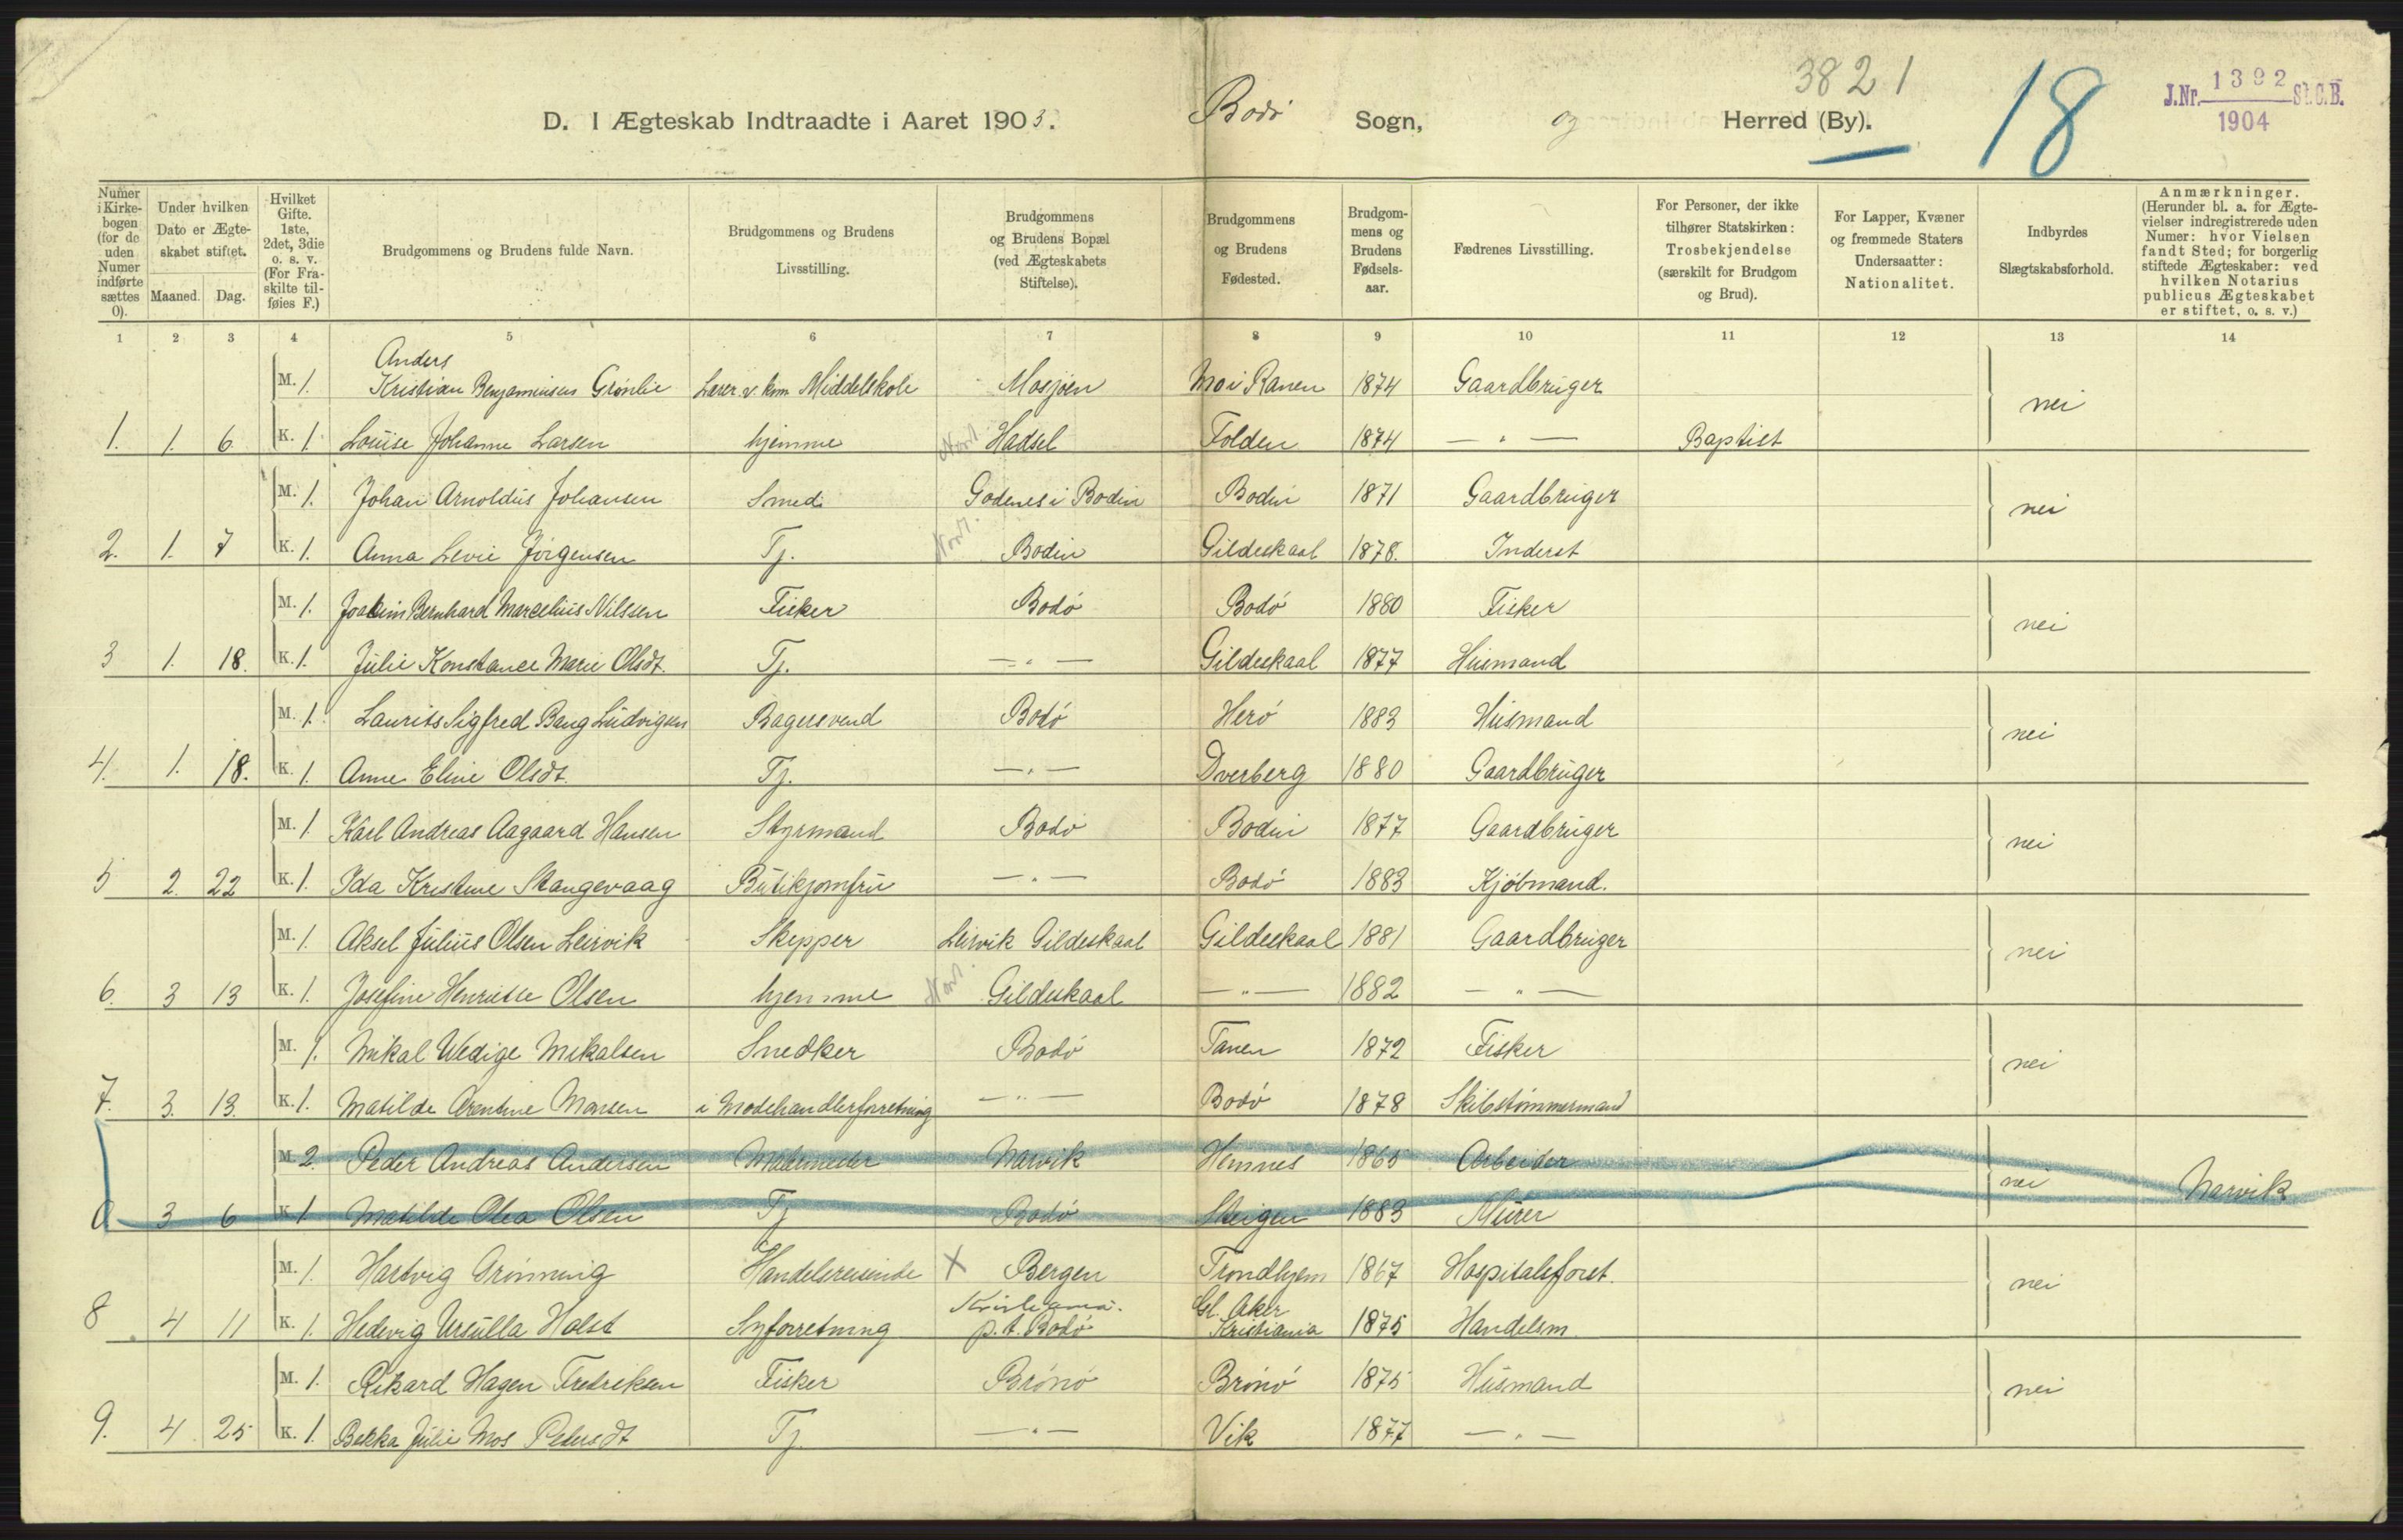 3821
18
J.Nr. 1392 St.C.B.
1904
D. I Ægteskab Indtraadte i Aaret 1903. Bodø Sogn, og Herred (By).
Numer i Kirkebogen (for de uden Numer indførte sættes 0).
Under hvilken Dato er Ægteskabet stiftet.
Maaned. Dag.
Hvilket Gifte. 1ste, 2det, 3die o. s. v. (For Fraskilte tilføies F.)
Brudgommens og Brudens fulde Navn.
Brudgommens og Brudens Livsstilling.
Brudgommens og Brudens Bopæl (ved Ægteskabets Stiftelse).
Brudgommens og Brudens Fødested.
Brudgommens og Brudens Fødselsaar.
Fædrenes Livsstilling.
For Personer, der ikke tilhører Statskirken: Trosbekjendelse (særskilt for Brudgom og Brud).
For Lapper, Kvæner og fremmede Staters Undersaatter: Nationalitet.
Indbyrdes Slægtskabsforhold.
Anmærkninger. (Herunder bl. a. for Ægtevielser indregistrerede uden Numer: hvor Vielsen fandt Sted; for borgerlig stiftede Ægteskaber: ved hvilken Notarius publicus Ægteskabet er stiftet, o. s. v.)
1 2 3 4 5 6 7 8 9 10 11 12 13 14
Anders
M. 1. Kristian Benjaminsen Grønlie Lærer v. kom. Middelskole Mosjøen Mo i Ranen 1874 Gaardbruger nei
1. 1. 6. K. 1. Louise Johanne Larsen hjemme Nord. Hadsel Folden 1874 — " — Baptist
M. 1. Johan Arnoldus Johansen Smed Godenes i Bodin Bodin 1871 Gaardbruger nei
2. 1. 7 K. 1. Anna Levie Jørgensen Tj. Nord. Bodin Gildeskaal 1878. Inderst
M. 1. Joakim Bernhard Marcelius Nilssen Fisker Bodø Bodø 1880 Fisker nei
3 1. 18. K. 1. Julie Konstance Marie Olsdt. Tj. — " — Gildeskaal 1877 Husmand
M. 1. Laurits Sigfred Bang Ludvigsen Bagersvend Bodø Herø 1883 Husmand nei
4. 1. 18. K. 1. Anne Eline Olsdt. Tj. — " — Dverberg 1880 Gaardbruger
M. 1. Karl Andreas Aagaard Hansen Styrmand Bodø Bodin 1877 Gaardbruger nei
5 2. 22 K. 1. Ida Kristine Stangevaag Butikjomfru — " — Bodø 1883 Kjøbmand.
M. 1. Aksel Julius Olsen Leirvik Skipper Leirvik Gildeskaal Gildeskaal 1881 Gaardbruger nei
6. 3 13 K. 1. Josefine Henriette Olsen hjemme Nord. Gildeskaal — " — 1882 — " —
M. 1. Mikal Wedige Mikalsen Snedker Bodø Tanen 1872 Fisker nei
7. 3. 13. K. 1. Matilde Arentine Monsen i Modehandlerforretning — " — Bodø 1878 Skibstømmermand
M. 2. Peder Andreas Andersen Narvik Hemnes 1865 Arbeider nei Narvik
0 3 6 K. 1 Matilde Olea Olsen Tj Bodø Steigen 1883 Murer
M. 1. Hartvig Grønning Handelsreisende X Bergen Trondhjem 1867 Hospitalsforst. nei
Kristiania. Gl. Aker
8 4 11 K. 1. Hedevig Ursulla Holst Syforretning p.t. Bodø Kristiania 1875 Handelsm.
M. 1. Rikard Hagen Fredriksen Fisker Brønø Brønø 1875 Husmand nei
9. 4 25 K. 1. Bekka Julie Mos Pedersdt Tj. — " — Vik 1877 — " —